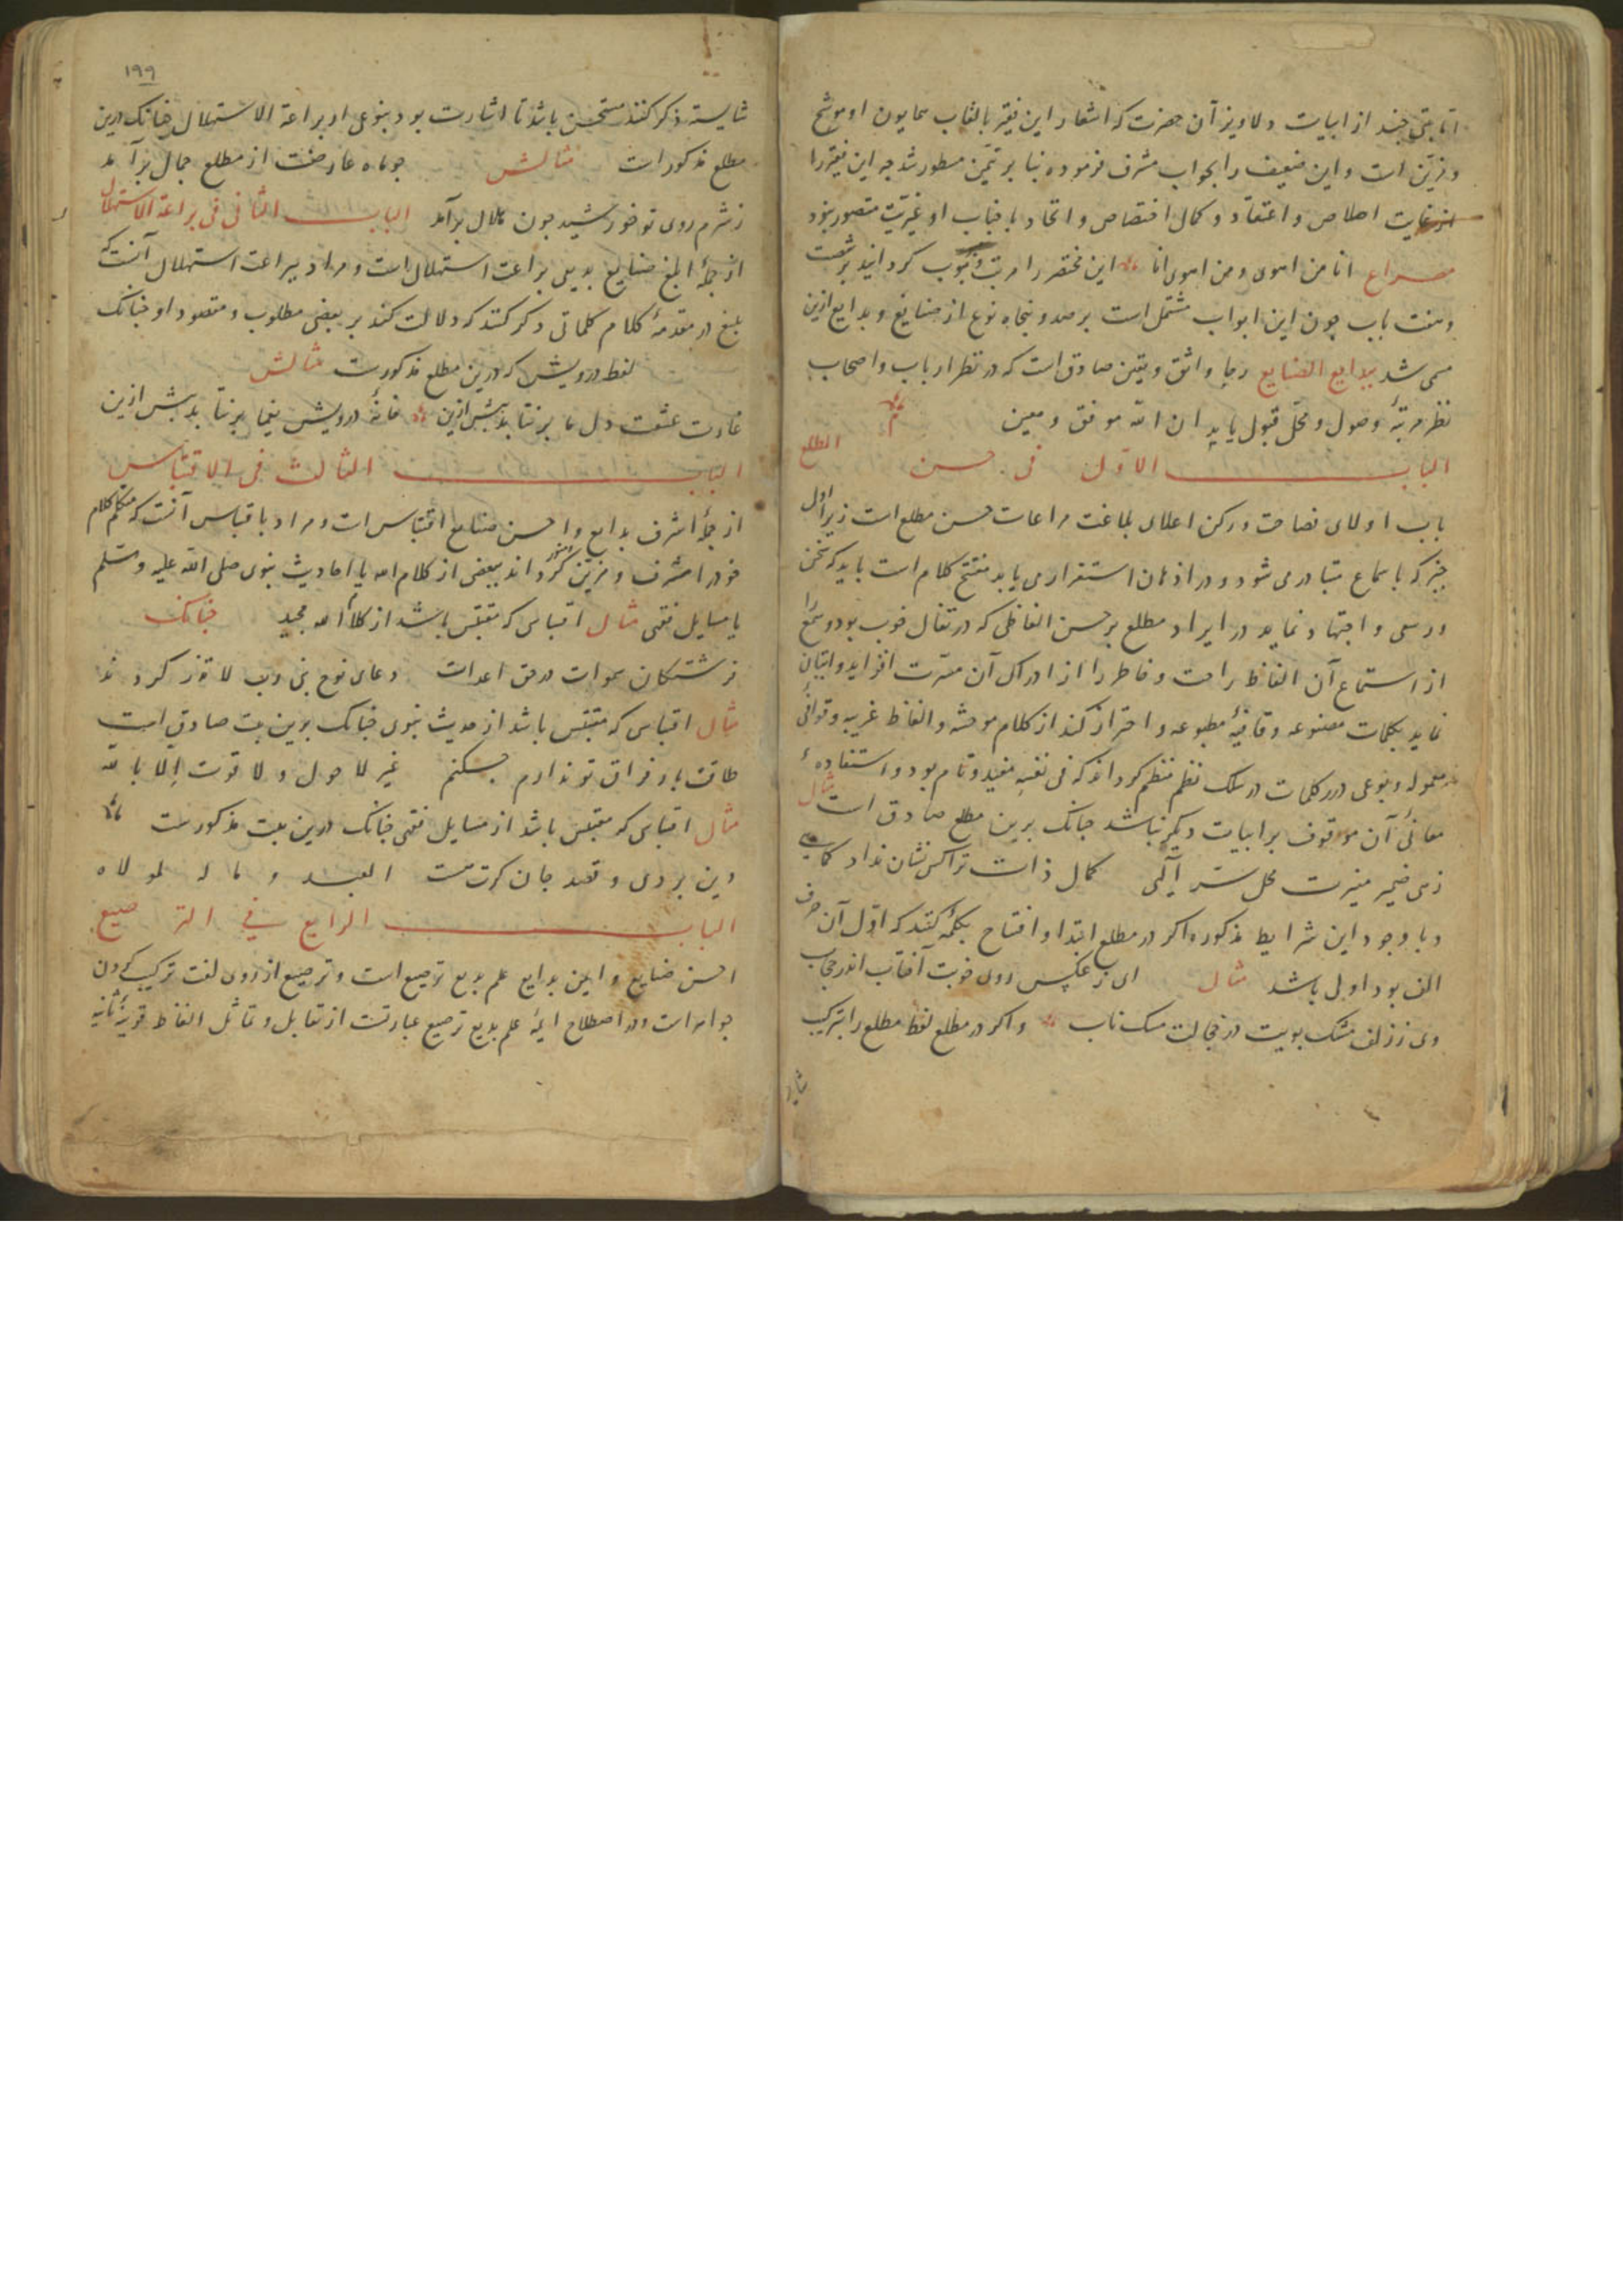 اما بیتی چند از ابیات دلاویز آن حضرت که اشعار این فقیر بالقاب همایون او موشح
و مزین است و این ضعیف را بجواب مشرف فرموده بنا بر تیمن مسطور شد چه این فقیر را
از غایت اخلاص و اعتقاد و کمال اختصاص و اتحاد با جناب او غیریت متصور نبود
مصراع انا من اهوی ومن اهوی انا این مختصر را مرتب و مبوب کردانید بر شصت
و هفت باب چون این ابواب مشتمل است بر صد و پنجاه نوع از صنایع و بدایع ازین
مسمی شد ببدایع الصنایع رجا واثق و یقین صادق است که در نظر ارباب و اصحاب
نظر مرتبهٔ وصول و محل قبول یابد ان الله موفق و معین
البـاب الاول فی حسن المطلع
باب اولای فصاحت و رکن اعلای بلاغت مراعات حسن مطلع است زیرا اول
چیز که باسماع متبادر می شود و در اذهان استقرار می یابد مفتتح کلام است باید که سخن
ور سعی و اجتهاد نماید در ایراد مطلع بر حسن الفاظی که در تفال خوب بود و سمع را
از استماع آن الفاظ راحت و خاطر را از ادراک آن مسرت افزاید و اتیان
نماید بکلمات مصنوعه و قافیهٔ مطبوعه و احتراز کند از کلام موحشه و الفاظ غریبه و قوافی
معموله و بنوعی درر کلمات در سلک نظم منتظم کرداند که فی نفسه مفید و تام بود و استفادهٔ
معانی آن موقوف بر ابیات دیکر نباشد چنانک برین مطلع صادق است مثال
زهی ضمیر منیرت محل سر آلهی کمال ذات ترا کس نشان نداد کماهی
و با وجود این شرایط مذکوره اکر در مطلع ابتدا و افتتاح بکلمهٔ کنند که اول آن حرف
الف بود اولی باشد مثال ای ز عکس روی خوبت آفتاب اندر حجاب
وی ز زلف مشک بویت در خجالت مشک ناب و اکر در مطلع لفظ مطلع را بترکیب
شایسته
۱۹۹
شایسته ذکر کنند مستحسن باشد تا اشارت بود بنوعی از براعة الاستهلال چنانک درین
مطلع مذکور است مثالش چو ماه عارضت از مطلع جمال برآمد
ز شرم روی تو خورشید چون هلال برآمد البـاب الثانی فی براعة الاستهلال
از جملهٔ ابلغ صنایع بدیعی براعت استهلال است و مراد ببراعت استهلال آنست که
بلیغ در مقدمهٔ کلام کلماتی ذکر کند که دلالت کند بر بعضی مطلوب و مقصود او چنانک
لفظ درویش که درین مطلع مذکورست مثالش
غارت عشقت دل ما برنتابد بیش ازین خانهٔ درویش یغما برنتابد بیش ازین
البـاب الثالث فی الاقتباس
از جملهٔ اشرف بدایع و احسن صنایع اقتباس است و مراد باقتباس آنست که متکلم کلام
خود را مشرف و مزین و منور کرداند ببعضی از کلام الله یا احادیث نبوی صلی الله علیه وسلم
یا مسایل فقهی مثال اقتباسی که مقتبس باشد از کلام الله مجید چنانک
فرشتکان سموات در حق اعدات دعای نوح نبی رب لا تذر کردند
مثال اقتباسی که مقتبس باشد از حدیث نبوی چنانک برین بیت صادق است
طاقت بار فراق تو ندارم چکنم غیر لا حول ولا قوت الا بالله
مثال اقتباسی که مقتبس باشد از مسایل فقهی چنانک درین بیت مذکورست
دین بردی و قصد جان کرت هست العبد وما له لمولاه
البـاب الرابع في الترصیع
احسن صنایع و ابین بدایع علم بدیع ترصیع است و ترصیع از روی لغت ترکیب کردن
جواهر است و در اصطلاح ایمهٔ علم بدیع ترصیع عبارتست از تقابل و تماثل الفاظ قرینهٔ ثانیه